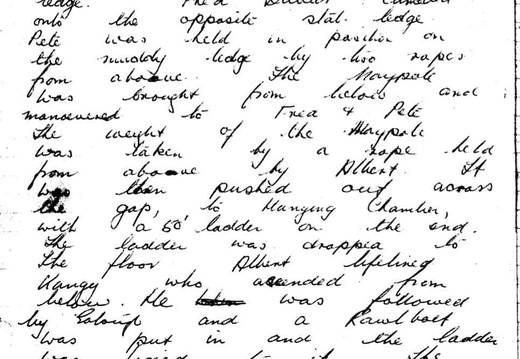 ledge. Fred
onto the opposite stal. ledge
Pete was held in position on
the muddy ledge by two ropes
from above. The Maypole
was brought from below and
manoevered to Fred & Pete
The weight of the Maypole
was taken by a rope held
from above by Albert. It
was then pushed out across
the gap, to Hanging Chamber,
with a 60' ladder on the end.
The ladder was dropped to
The floor Albert lifelined
Kangy who ascended from
below. He was followed
by and a Rawlbolt
was put in and the ladder
was used to The